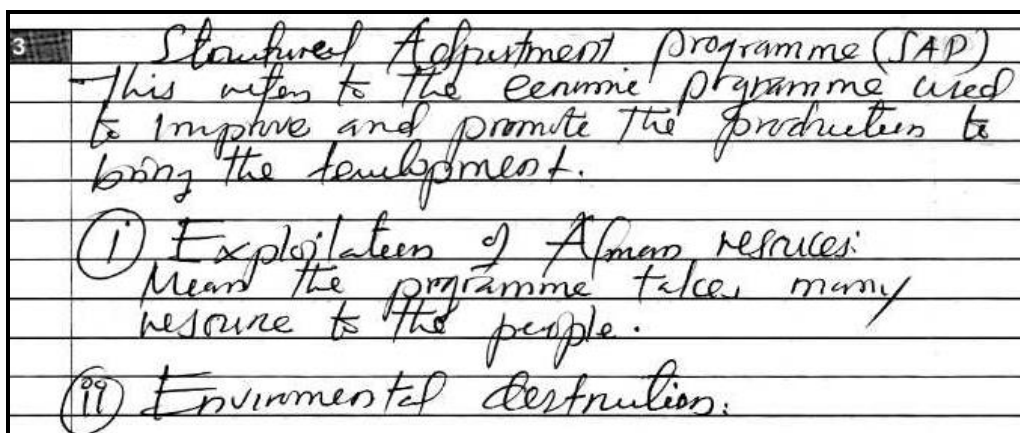 3
Structural Adjustment programme (SAP)
This refers to the economic programme used
to improve and promote the production to
bring the development.
(i) Exploitation of African resources:
Mean the programme takes many
resource to the people.
(ii) Envirnmental destruction.